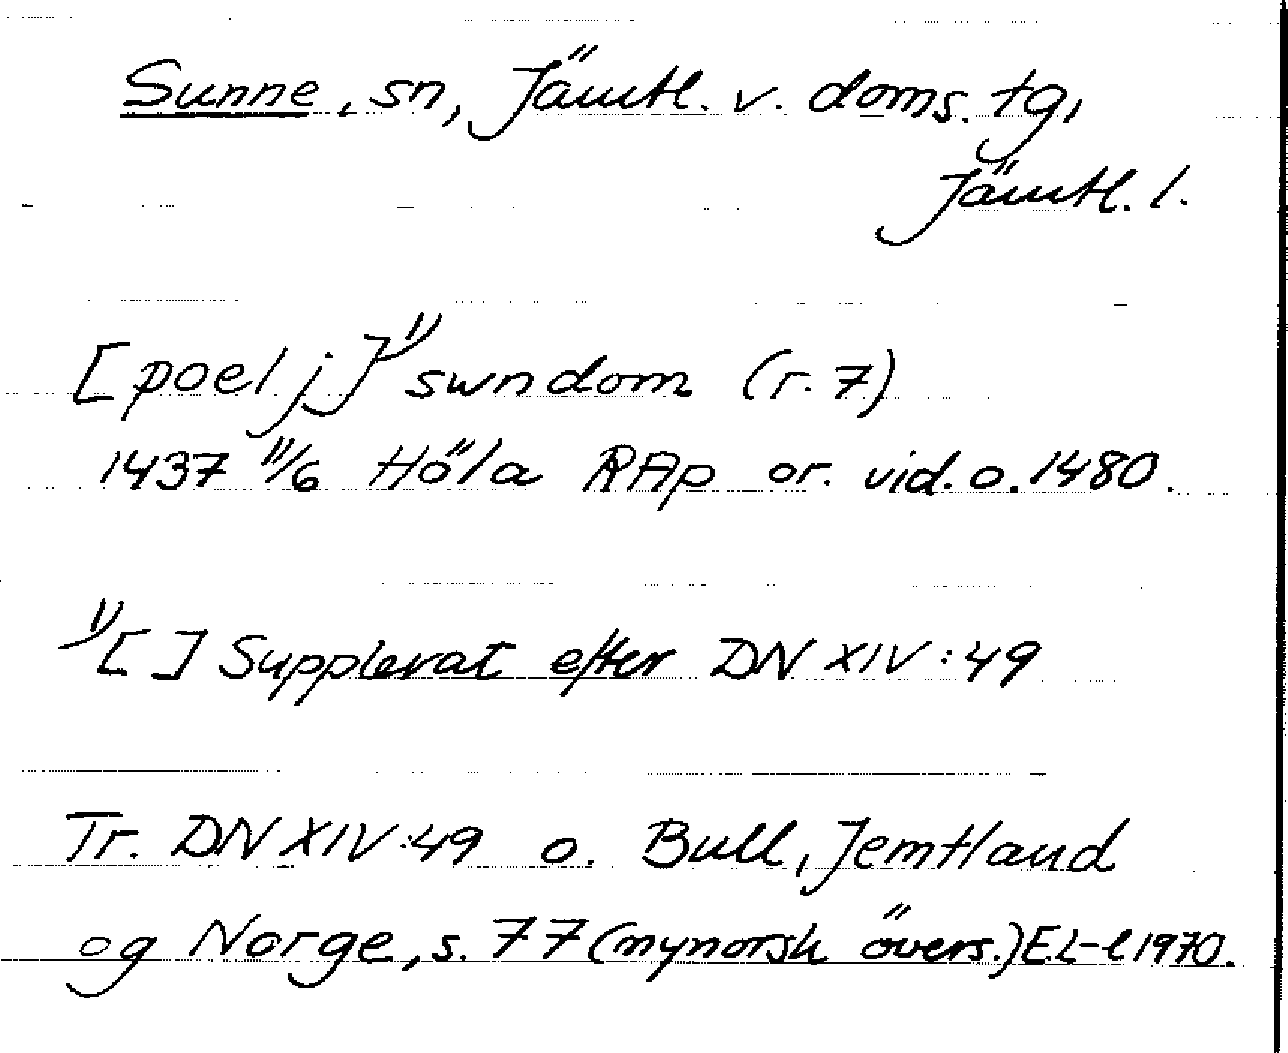 Sunne, sn, Jämtl. v. doms. tg,
Jämtl. l.
[poel j]¹⁾ swndom (r. 7)
1437 11/6 Höla RAp or. vid. o. 1480.
¹⁾[ ] Supplerat efter DN XIV:49
Tr. DN XIV:49 o. Bull, Jemtland
og Norge, s. 77 (nynorsk övers.) E.L-l 1970.